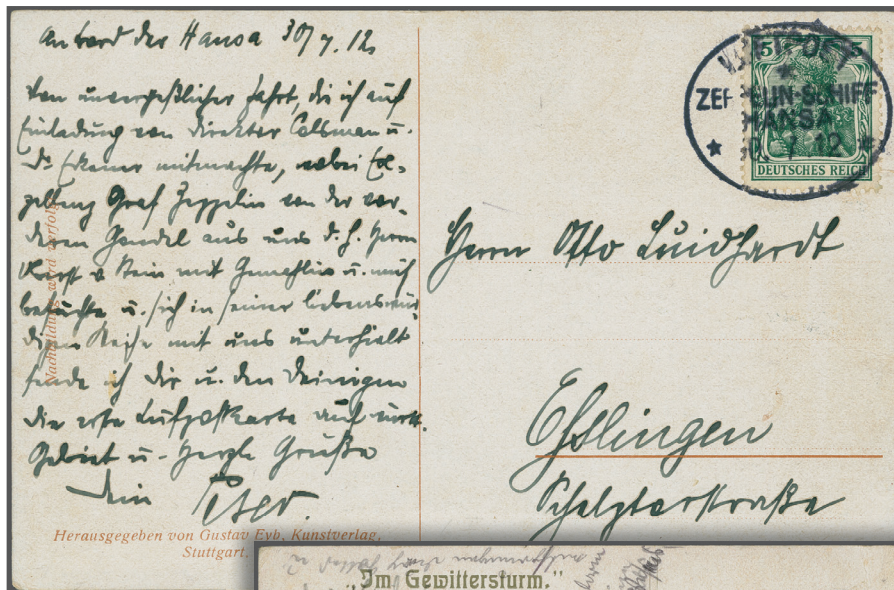 An bord der Hansa 30/7. 12.
Von unvergeßlicher Fahrt, die ich auf
Einladung von Direktor Colsman u.
Dr Eckener mitmachte, wobei Ex-
zellenz Graf Zeppelin von der vor-
deren Gondel aus uns d. h. Herrn
v Stein mit Gemahlin u. mich
besuchte u. sich in seiner liebenswür-
digen Weise mit uns unterhielt
sende ich Dir u. den Deinigen
die erste Luftpostkarte auf württ.
Gebiet u. herzl Grüße
Dein
Nachbildung wird verfolgt
Herausgegeben von Gustav Eyb, Kunstverlag,
Stuttgart.
5 5
ZEPPELIN-SCHIFF
HANSA
7. 12
DEUTSCHES REICH
Herrn Otto Luidhardt
Eßlingen
Schelztorstraße
„Im Gewittersturm."